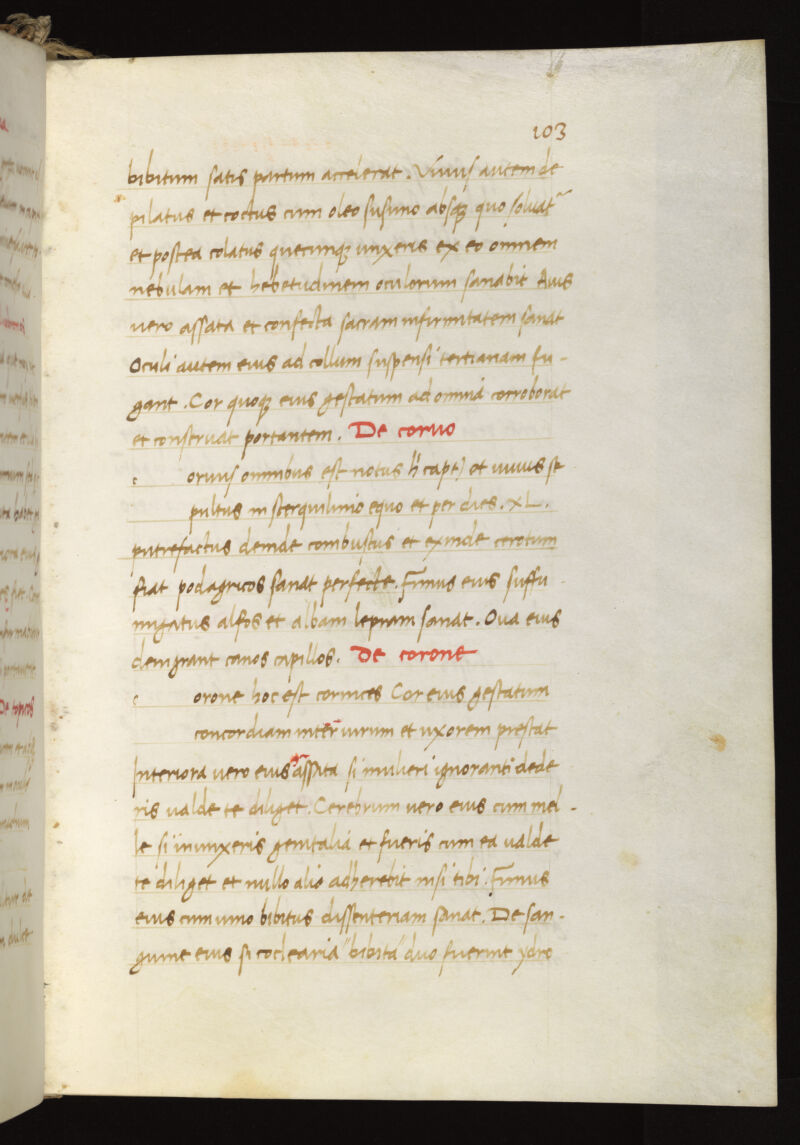 103
bibitum satis partum accelerat. Vivus autem de
pilatus et coctus cum oleo susino absqꝫ quo solvat᷑
et postea colatus quecunqꝫ unxeris ex eo omnem
nebulam et hebetudinem oculorum sanabit Avis
vero assata et confecta sacram infirmitatem sanat
Oculi autem eius ad collum suspensi tertianam fu-
gant. Cor quoqꝫ eius gestatum ad omnia corroborat
et construat portantem. De corvo
c orvus omnibus est notus h' capt) et vivus se
pultus in sterquilinio equo et per dies. XL.
putrefactus deinde combustus et exinde cerotum
fiat podagricos sanat perfecte. Fimus eius suffu-
migatus alfos et albam lepram sanat. Ova eius
denigrant canos capillos. De corone
c orone hoc est cornices Cor eius gestatum
concordiam inter virum et uxorem prestat
Interiora vero eius assata si mulieri ignoranti dede
ris valde te diliget. Cerebrum vero eius cum mel-
le si inunxeris genitalia et fueris cum ea valde
te diliget et nullo alio adherebit nisi tibi. Fimus
eius cum vino bibitus dissenteriam sanat. De san-
guine eius si coclearia "bibita" duo fuerint ydro